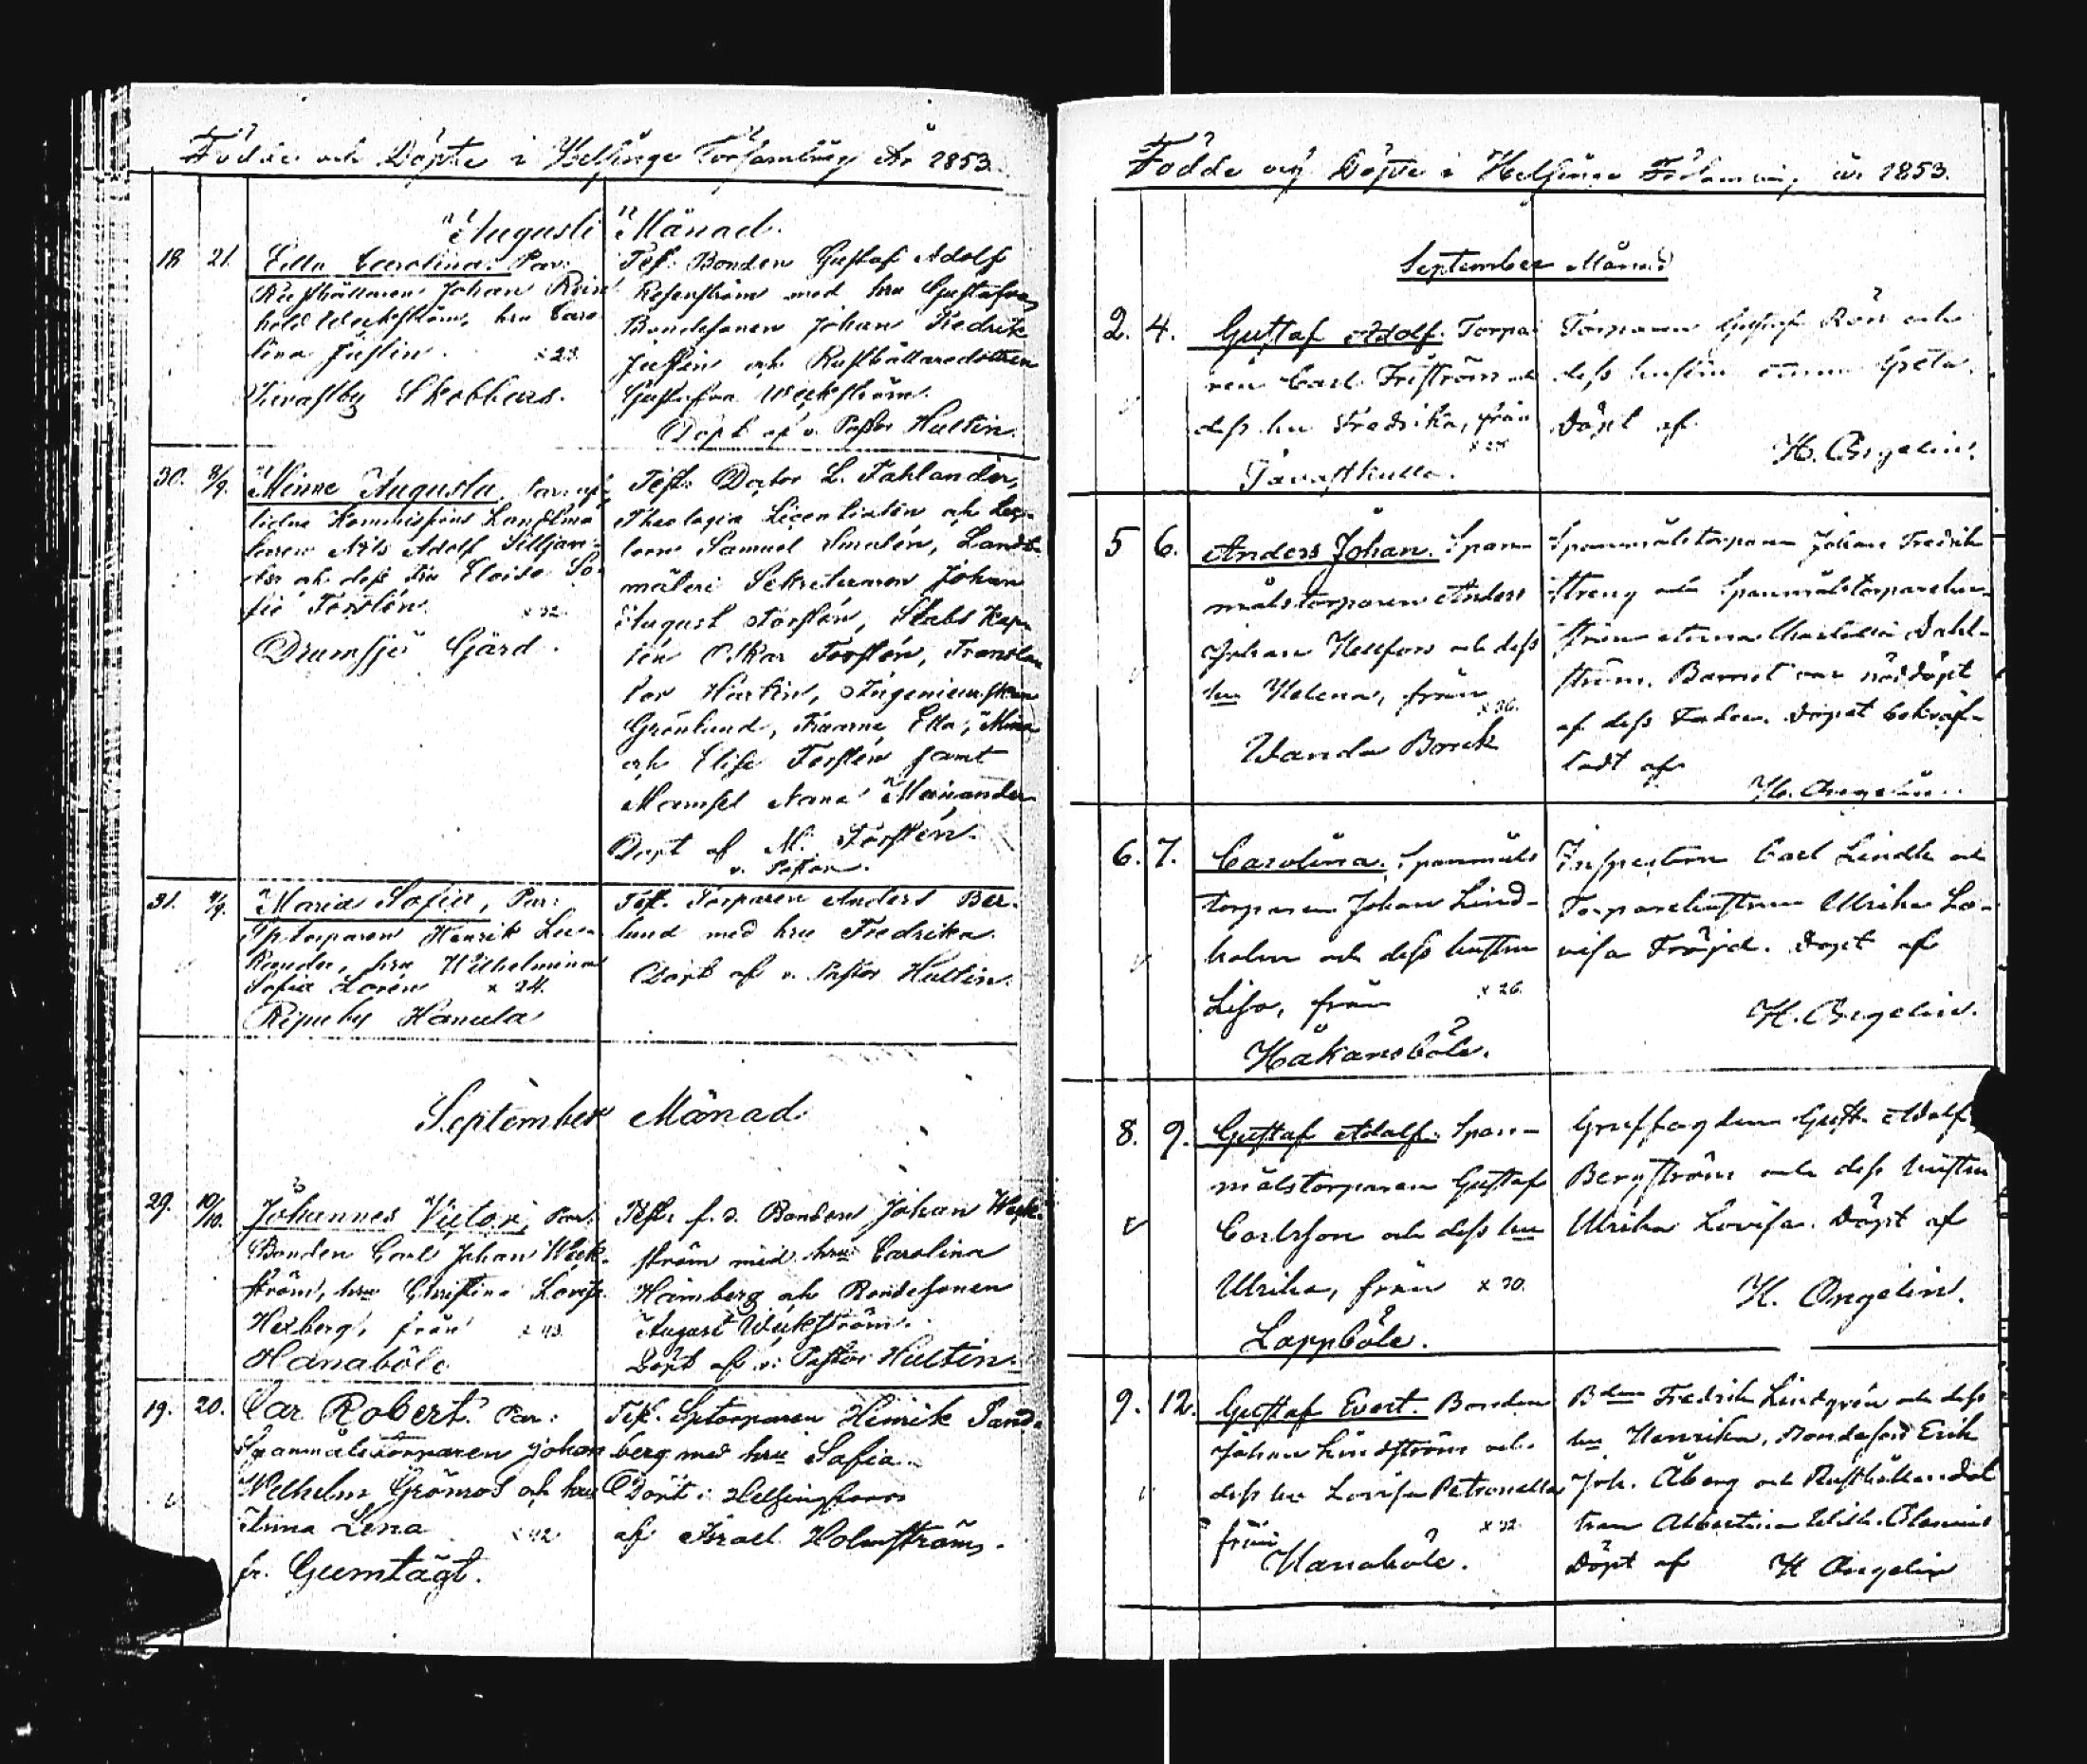 Födde och Döpte i Helsinge Församling År 1853.
Augusti Månad.
18 21. Edla Carolina. Par:
Rusthållaren Johan Rein
hold Weckström, hru Caro
lina Justin. x 23.
Skobbars.
Test. Bonden Gustaf Adolf
med hru Gustafva,
Bondesonen Johan Fredrik
Justin och Rusthållaredottren
Gustafva Weckström.
Döpt af v. Pastor Hultin.
30. 8/9. Minne Augusta.
Kommissions Landtmä
taren Nils Adolf
och dess fru So
fie Forstén. x 32.
Drumsjö Gård.
Test. Doctor L. Fahlander,
Theologie Licentiaten och
Samuel Landt-
mäteri Sekreteraren Johan
August Forstén, Stabs Kap
tén Oskar Forstén, Transla
tor Hartin,
Grönlund, Fruarne Mina
och Elise Forstén samt
Mamsel
Döpt af M. Forstén.
v. Pastor.
31. 4/9. Maria Sofia, Par:
Sptorparen Henrik
hru Wilhelmina
Sofia Lorén x 24.
Ripuby Hanula
Test. Torparen Anders Ber-
lund med hru Fredrika.
Döpt af v. Pastor Hultin.
September Månad.
29. 10/10. Johannes Victor, Par.
Bonden Carl Johan Weck-
ström, hru Christina Lovisa
Hexberg, från x 43.
Hanaböle
Test: f. d. Bonden Johan Weck-
ström med hru Carolina
Hamberg och Bondesonen
August Weckström.
Döpt af v. Pastor Hultin.
19. 20. Car Robert. Par:
Spanmålstorparen Johan
Wilhelm Grönros och hru
Anna Lena x 42
fr. Gumtägt.
Test. Sptorparen Henrik Sand-
berg med hru Sofia.
Döpt i Helsingfors
af Israel Holmström.
Födde och Döpte i Helsinge Församling år 1853.
September Månad
2. 4. Gustaf Adolf. Torpa
ren Carl Friström och
dess hu Fredrika, från
x 28
Tavastkulla.
Torparen Gustaf Rön och
dess hustru Anna Greta.
Döpt af
H. Ongelin.
5 6. Anders Johan. Span-
målstorparen Anders
Johan Hellfors och dess
hu Helena, från
x 36.
Wanda Bruk
Spanmålstorparen Johan Fredrik
Streng och Spanmålstorparehu-
strun Anna Dahl-
ström. Barnet var nöddöpt
af dess Fader. Döpet bekräf-
tadt af
H. Ongelin.
6. 7. Carolina. Spanmåls
torparen Johan Lind-
holm och dess hustru
Lisa, från x 26.
Håkansböle.
Inspectorn Carl Lindh och
Torparehustrun Ulrika Lo-
visa Fröjd. Döpt af
H. Ongelin.
8. 9. Gustaf Adolf. Span-
målstorparen Gustaf
Carlsson och dess hu
Ulrika, från x 30.
Lappböle.
Gruffogden Gust. Adolf
Bergström och dess hustru
Ulrika Lovisa. Döpt af
H. Ongelin.
9. 12. Gustaf Evert. Bonden
Johan Lindström och
dess hu Lovisa Petronella
x 32.
från
Hanaböle.
Bden Fredrik Lindgrén och dess
hu Henrika, Bondeson Erik
Joh. Åberg och Rusthållaredot
tren Albertina Wilh.
Döpt af H Ongelin